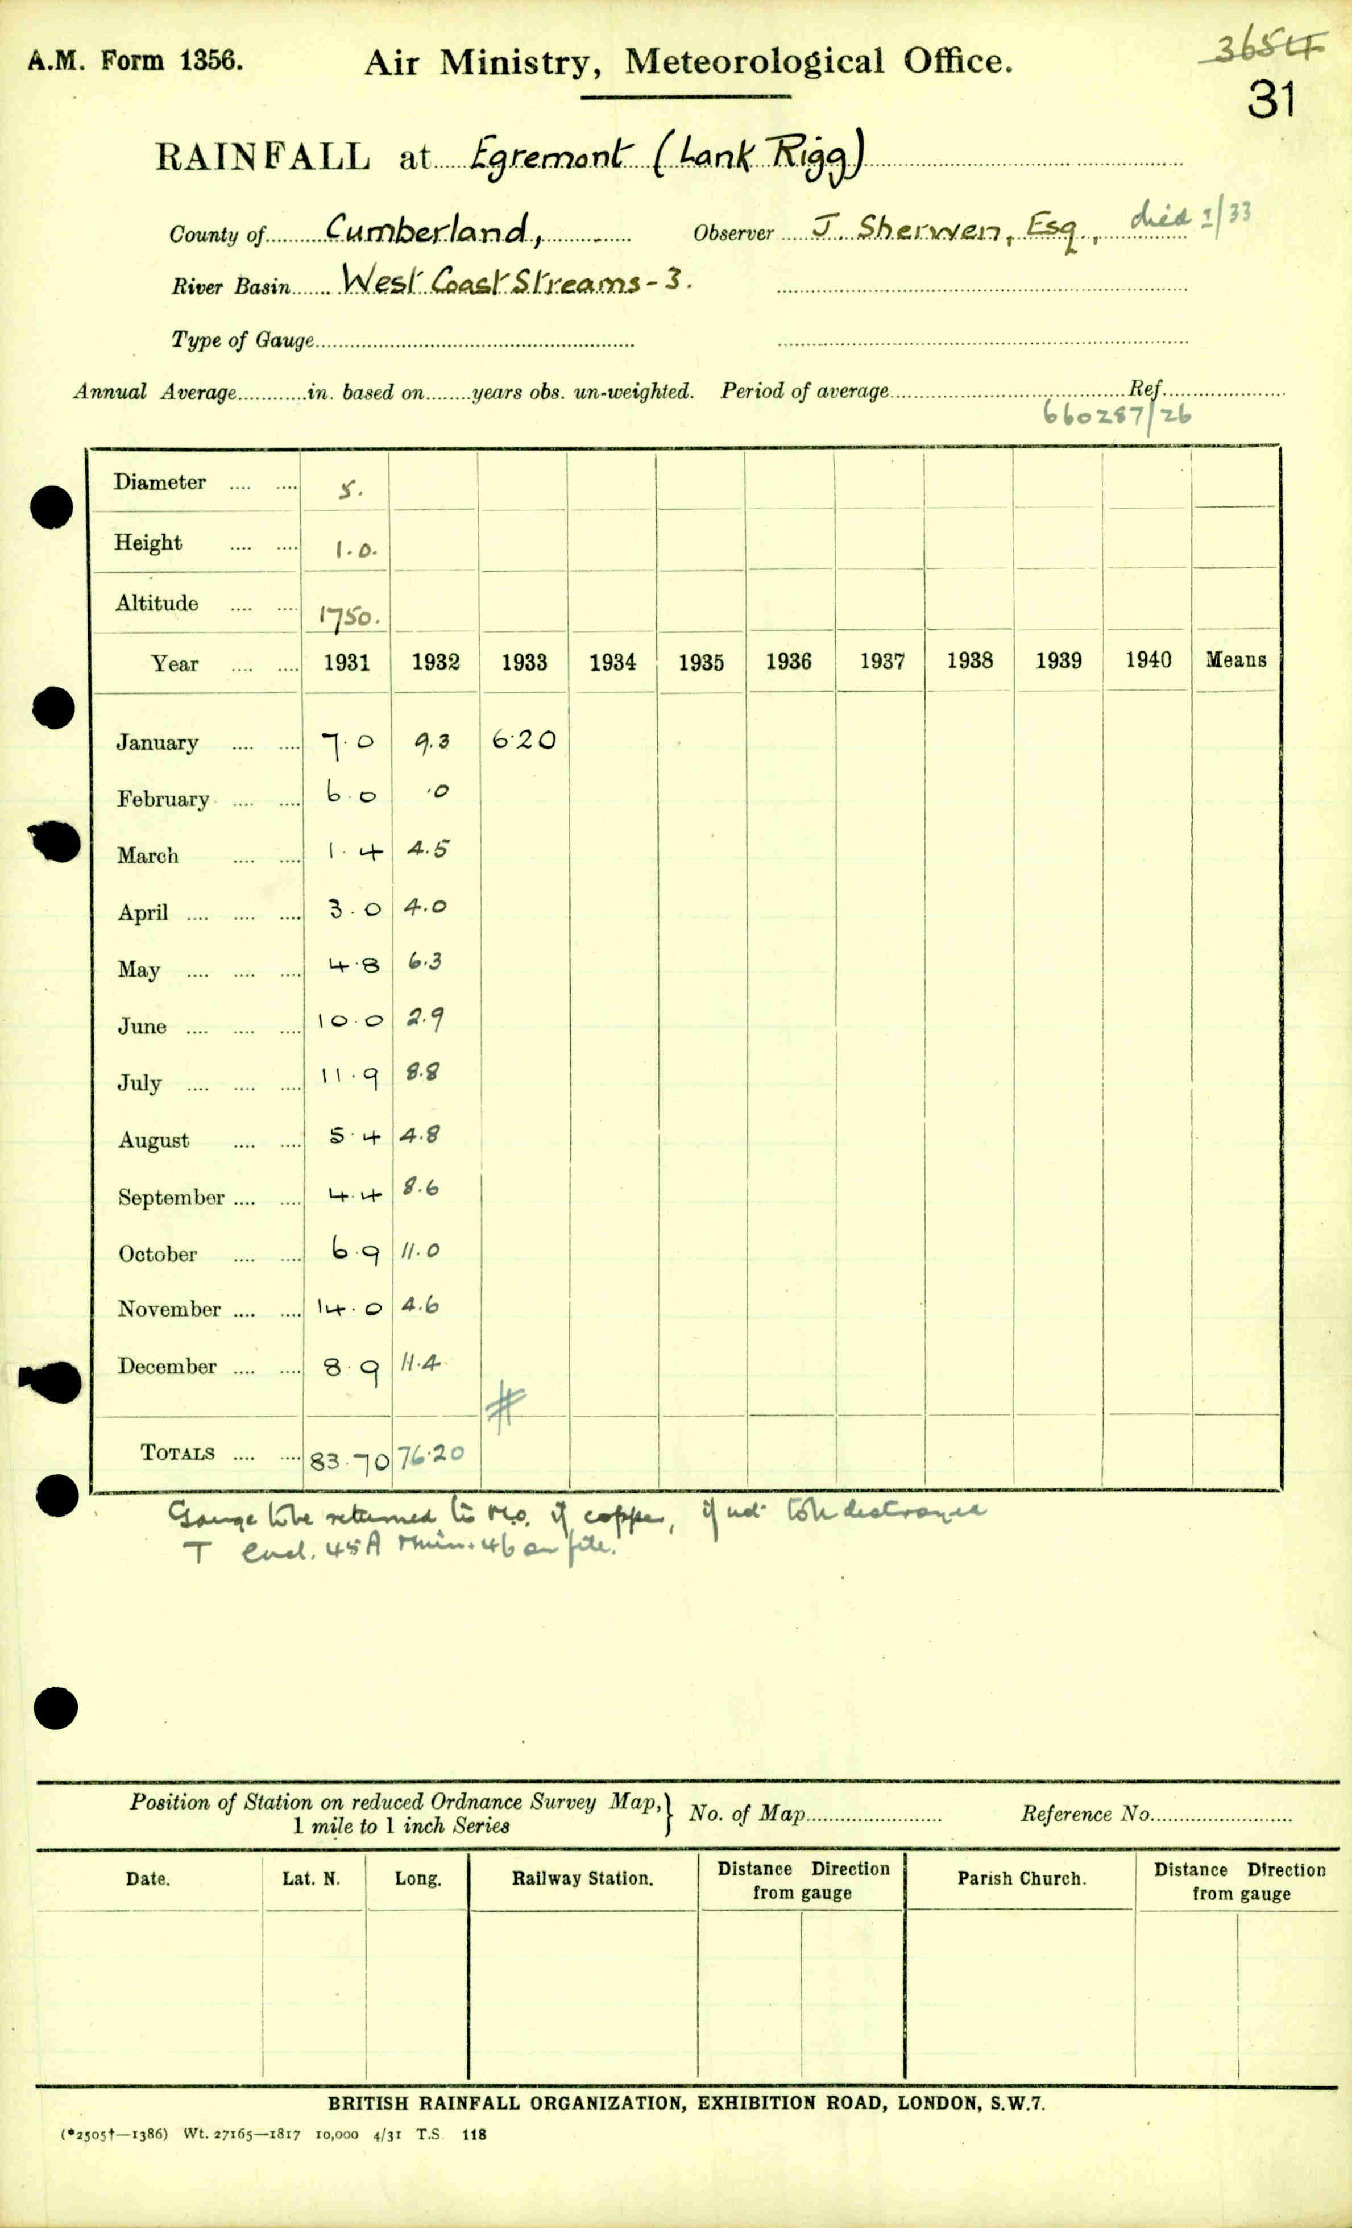 A.M. Form 1356.
Air Ministry, Meteorological Office.
3654
31
RAINFALL at Egremont (Lank Rigg)
County of Cumberland, Observer J. Sherwen, Esq., died 1/33
River Basin West Coast Streams - 3.
Type of Gauge
Annual Average in. based on years obs. un-weighted. Period of average Ref.
660287/26
Diameter 5.
Height 1.0.
Altitude 1750.
Year 1931 1932 1933 1934 1935 1936 1937 1938 1939 1940 Means
January 7.0 9.3 6.20
February 6.0 .0
March 1.4 4.5
April 3.0 4.0
May 4.8 6.3
June 10.0 2.9
July 11.9 8.8
August 5.4 4.8
September 4.4 8.6
October 6.9 11.0
November 14.0 4.6
December 8.9 11.4
#
TOTALS 83.70 76.20
Gauge to be returned to M.O. if copper, if not to be destroyed
T encl. 45A Min. 46 on file.
Position of Station on reduced Ordnance Survey Map, } No. of Map Reference No.
1 mile to 1 inch Series
Date. Lat. N. Long. Railway Station. Distance Direction from gauge Parish Church. Distance Direction from gauge
BRITISH RAINFALL ORGANIZATION, EXHIBITION ROAD, LONDON, S.W.7.
(*2505†—1386) Wt. 27165—1817 10,000 4/31 T.S. 118